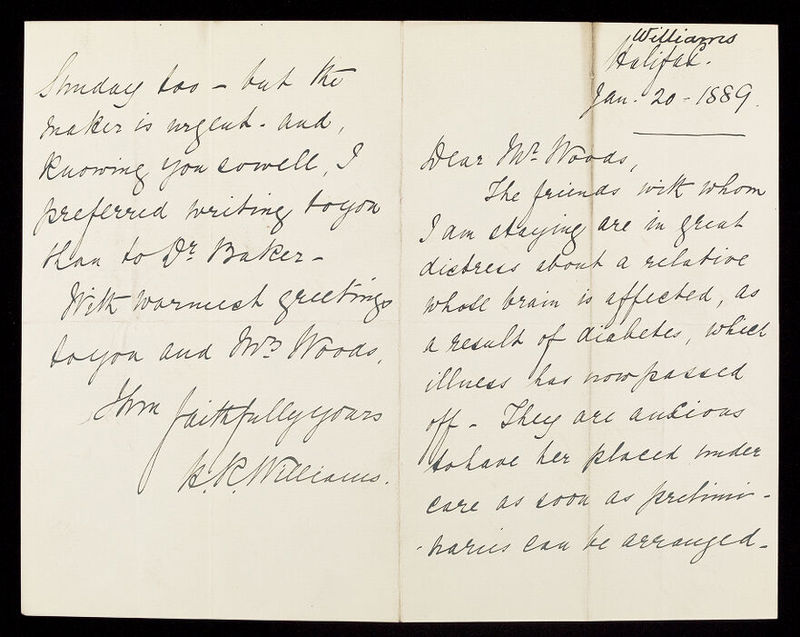 Williams
Halifax.
Jan. 20 - 1889.
Dear Mr. Woods,
The friends with whom
I am staying are in great
distress about a relative
whose brain is affected, as
a result of diabetes, which
illness has now passed
off - They are anxious
to have her placed under
care as soon as prelimi-
-naries can be arranged -
Sunday too - but the
maker is urgent - and,
knowing you so well, I
preferred writing to you
than to Dr. Baker -
With warmest greetings
to you and Mrs Woods,
I am faithfully yours
Williams.